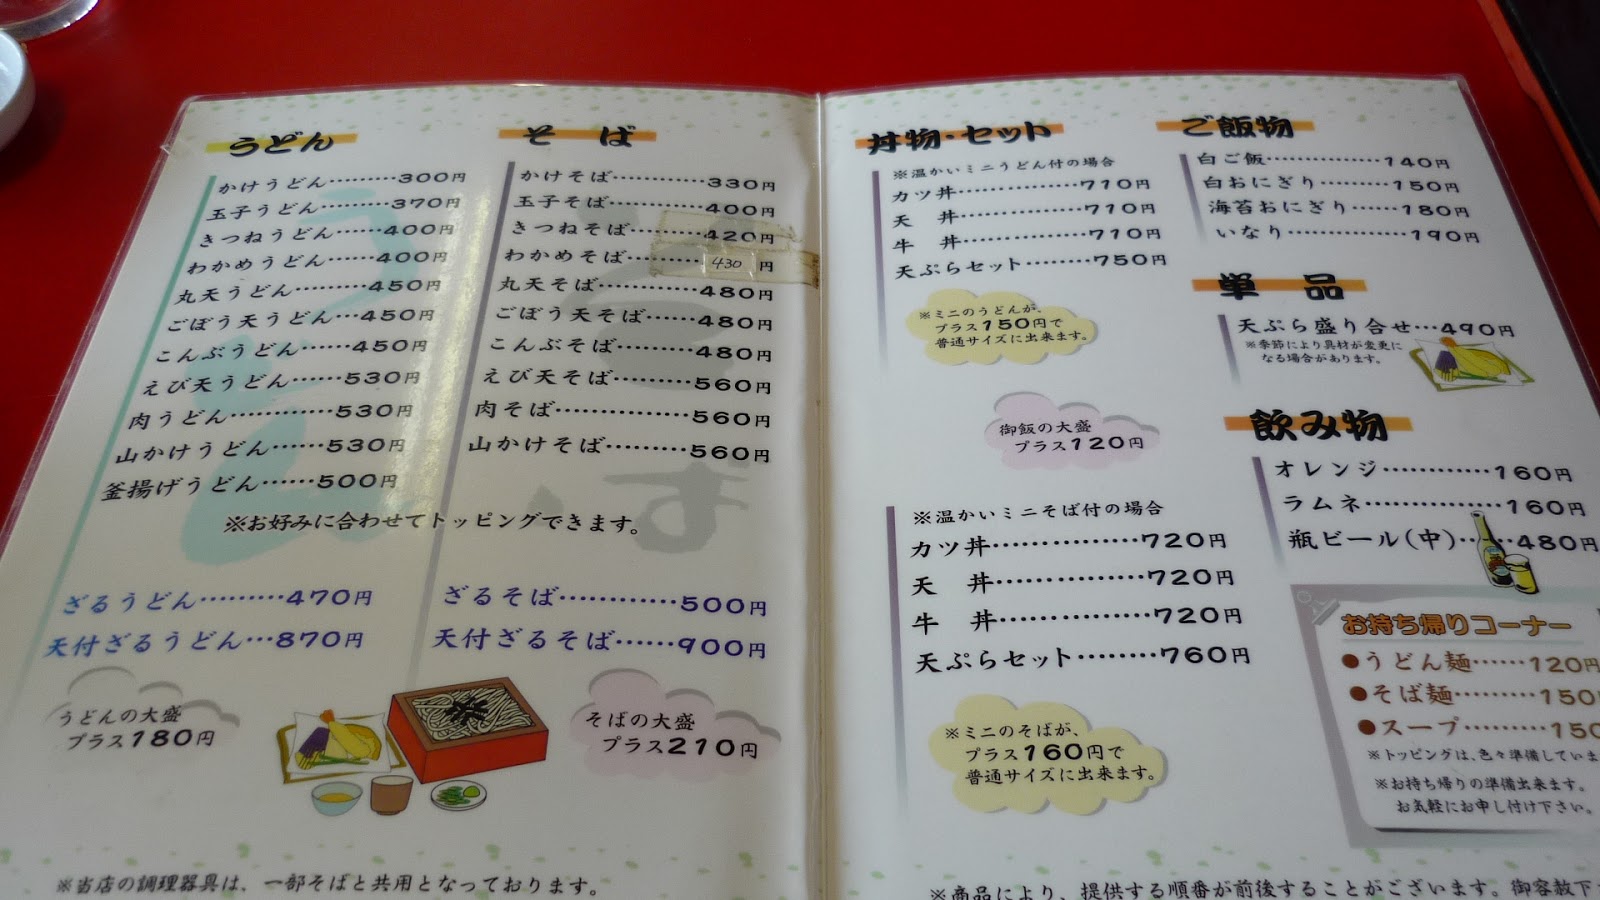 うどん
かけうどん………300円
玉子うどん………370円
きつねうどん……400円
わかめうどん……400円
丸天うどん………450円
ごぼう天うどん…450円
こんぶうどん……450円
えび天うどん……530円
肉うどん…………530円
山かけうどん……530円
釜揚げうどん……500円
※お好みに合わせてトッピングできます。
ざるうどん………470円
天付ざるうどん…870円
うどんの大盛
プラス180円
そば
かけそば…………330円
玉子そば…………400円
きつねそば………420円
わかめそば………430円
丸天そば…………480円
ごぼう天そば……480円
こんぶそば………480円
えび天そば………560円
肉そば……………560円
山かけそば………560円
ざるそば…………500円
天付ざるそば……900円
そばの大盛
プラス210円
※当店の調理器具は、一部そばと共用となっております。
丼物・セット
※温かいミニうどん付の場合
カツ丼……………710円
天 丼……………710円
牛 丼……………710円
天ぷらセット………750円
※ミニのうどんが、
プラス150円で
普通サイズに出来ます。
御飯の大盛
プラス120円
※温かいミニそば付の場合
カツ丼……………720円
天 丼……………720円
牛 丼……………720円
天ぷらセット………760円
※ミニのそばが、
プラス160円で
普通サイズに出来ます。
ご飯物
白ご飯……………140円
白おにぎり………150円
海苔おにぎり……180円
いなり……………190円
単品
天ぷら盛り合せ…490円
※季節により具材が変更に
なる場合があります。
飲み物
オレンジ…………160円
ラムネ……………160円
瓶ビール(中)……480円
お持ち帰りコーナー
●うどん麺……120円
●そば麺………150
●スープ………150
※トッピングは、色々準備していま
※お持ち帰りの準備出来ます。
お気軽にお申し付け下さい。
※商品により、提供する順番が前後することがございます。御容赦下